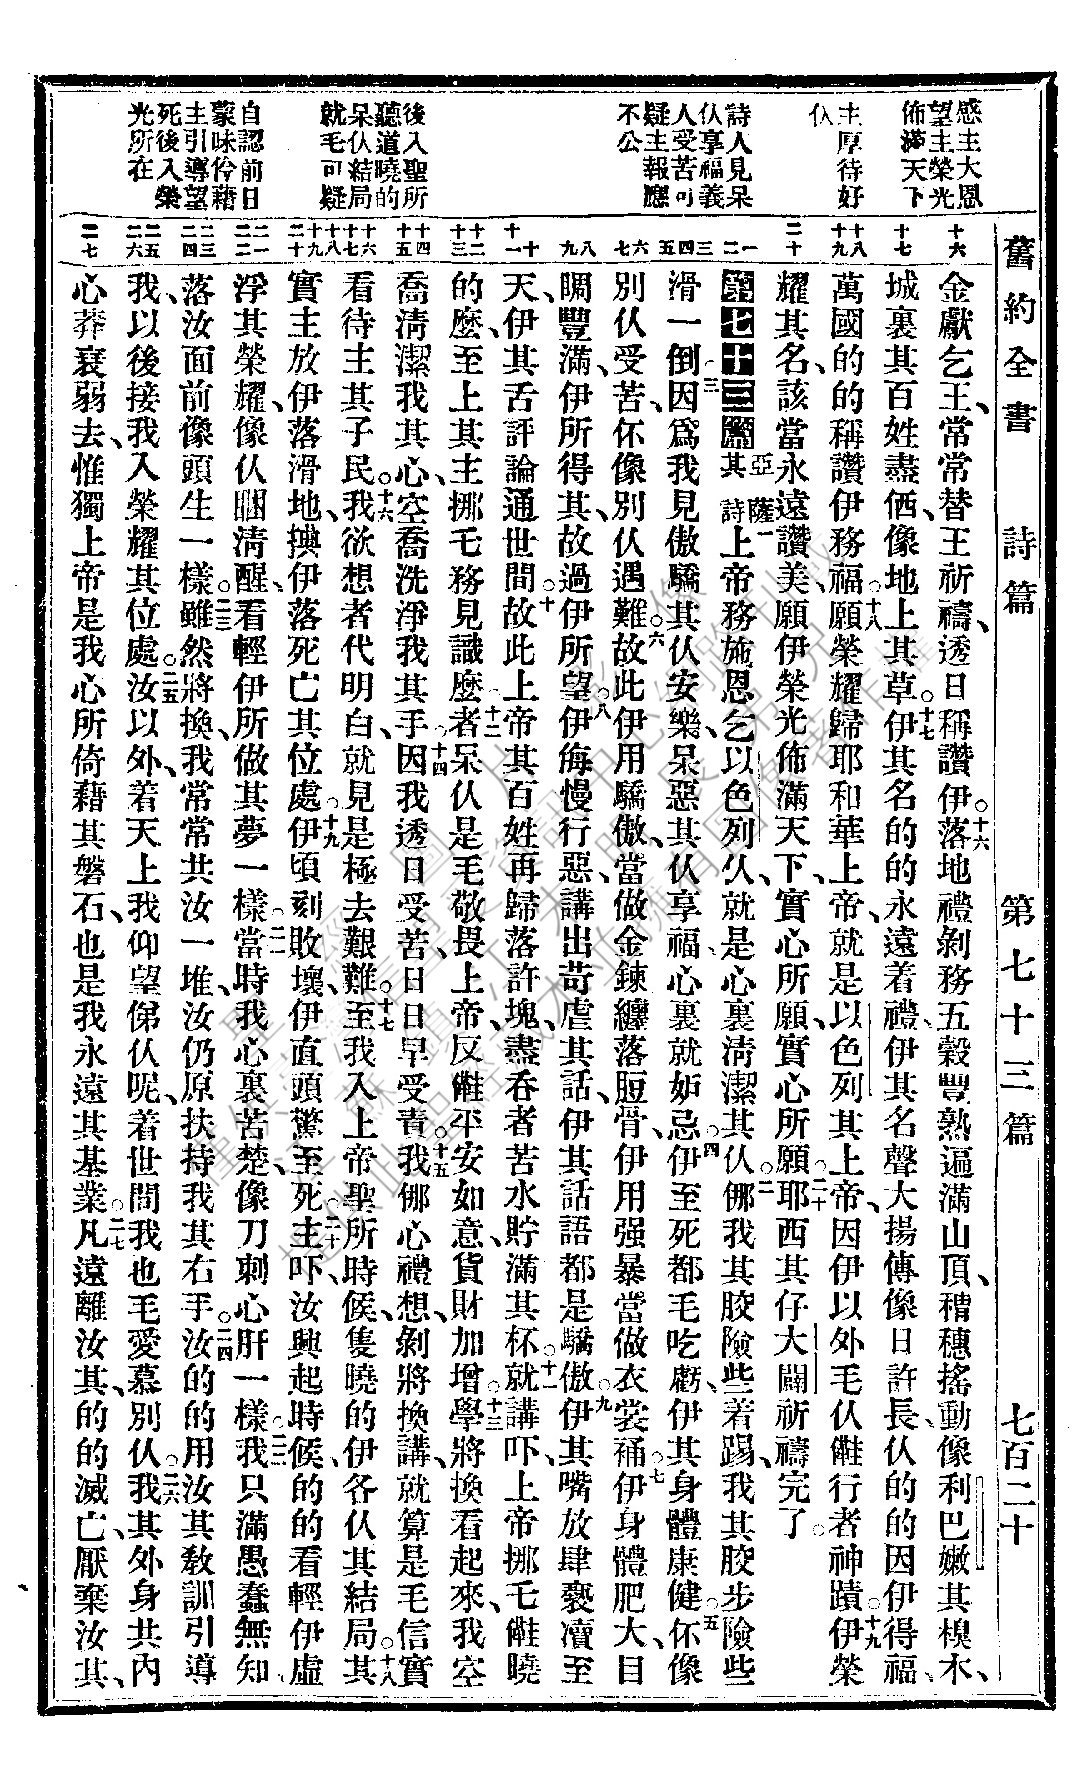 舊約全書 詩篇 第七十三篇 七百二十
感主大恩
望主榮光
佈滿天下
主厚待好
仈
詩人見呆
仈享福義
人受苦可
疑主報應
不公
後入聖所
聽道曉的
呆仈結局
就乇可疑
自認前日
蒙昧伶藉
主引導望
死後入榮
光所在
十六
十七
十八
十九
二十
一
二
三
四
五
六
七
八
九
十
十一
十二
十三
十四
十五
十六
十七
十八
十九
二十
二一
二二
二三
二四
二五
二六
二七
金獻乞王、常常替王祈禱、透日稱讚伊。十六落地禮剝務五穀豐熟遍滿山頂、穧穗搖動像利巴嫩其模木、
城裏其百姓盡俖像地上其草。十七伊其名的的永遠着禮、伊其名聲大揚傳像日許長、仈的的因伊得福、
萬國的的稱讚伊務福。十八願榮耀歸耶和華上帝、就是以色列其上帝、因伊以外乇仈雔行者神蹟。十九伊榮
耀其名、該當永遠讚美、願伊榮光佈滿天下、實心所願、實心所願。二十耶西其仔大闢祈禱完了。
第七十三篇 亞薩其詩 一上帝務施恩乞以色列仈、就是心裏清潔其仈。二㑚我其骹險些着踢、我其骹步險些
滑一倒。三因爲我見傲驕其仈安樂、呆惡其仈享福、心裏就妒忌。四伊至死都乇吃虧、伊其身體康健。五伓像
別仈受苦、伓像別仈遇難。六故此伊用驕傲當做金鍊纏落脰骨、伊用强暴當做衣裳補。七伊身體肥大、目
瞯豐滿、伊所得其、故過伊所望。八伊侮慢行惡講出苛虐其話、伊其話語都是驕傲。九伊其嘴放肆褻瀆至
天、伊其舌評論通世間。十故此上帝其百姓再歸落許塊、盡吞者苦水貯滿其杯。十一就講吓、上帝挪乇雔曉
的麼、至上其主挪乇務見識麼。十二者呆仈是乇敬畏上帝、反雔平安如意、貨財加增。十三學將換看起來、我空
喬清潔我其心、空喬洗淨我其手。十四因我透日受苦、日日早受責。十五我㑚心禮想、剝將換講、就算是乇信實
看待主其子民。十六我欲想者代明白、就見是極去艱難。十七至我入上帝聖所時候、隻曉的伊各仈其結局。十八其
實主放伊落滑地、㨑伊落死亡其位處。十九伊頃刻敗壞、伊直頭驚至死。二十主吓、汝興起時候、的的看輕伊虛
浮其榮耀、像仈睏清醒、看輕伊所做其夢一樣。二一當時我心裏苦楚、像刀刺心肝一樣。二二我只滿愚蠢無知、
落汝面前像頭生一樣。二三雖然將換、我常常共汝一堆、汝仍原扶持我其右手。二四汝的的用汝其教訓引導
我、以後接我入榮耀其位處。二五汝以外、着天上我仰望俤仈呢、着世間我也乇愛慕別仈。二六我其外身共內
心莽衰弱去、惟獨上帝是我心所倚藉其磐石、也是我永遠其基業。二七凡遠離汝其、的的滅亡、厭棄汝其、